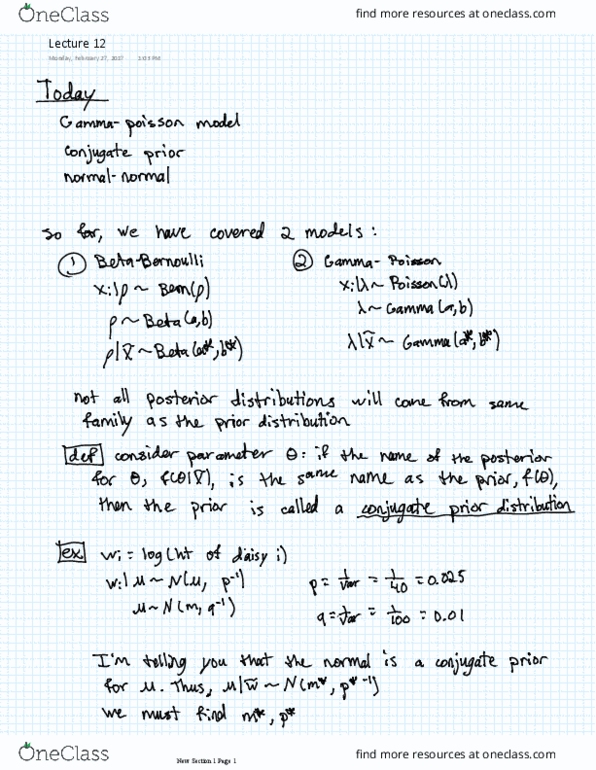 OneClass find more resources at oneclass.com
Lecture 12
Monday, February 27, 2017 1:03 PM
Today
Gamma-poisson model
conjugate prior
normal-normal
so far, we have covered 2 models:
① Beta-Bernoulli ② Gamma-Poisson
xi|p ~ Bern(p) xi|λ ~ Poisson(λ)
p ~ Beta(a,b) λ ~ Gamma(a,b)
p|x̃ ~ Beta(a*,b*) λ|x̃ ~ Gamma(a*,b*)
not all posterior distributions will come from same
family as the prior distribution
def consider parameter θ: if the name of the posterior
for θ, f(θ|x̃), is the same name as the prior, f(θ),
then the prior is called a conjugate prior distribution
ex wi = log(ht of daisy i)
wi|μ ~ N(μ, p⁻¹) p = 1/var = 1/40 = 0.025
μ ~ N(m, q⁻¹) q = 1/var = 1/100 = 0.01
I'm telling you that the normal is a conjugate prior
for μ. Thus, μ|w̃ ~ N(m*, p*⁻¹)
we must find m*, p*
New Section 1 Page 1
OneClass find more resources at oneclass.com